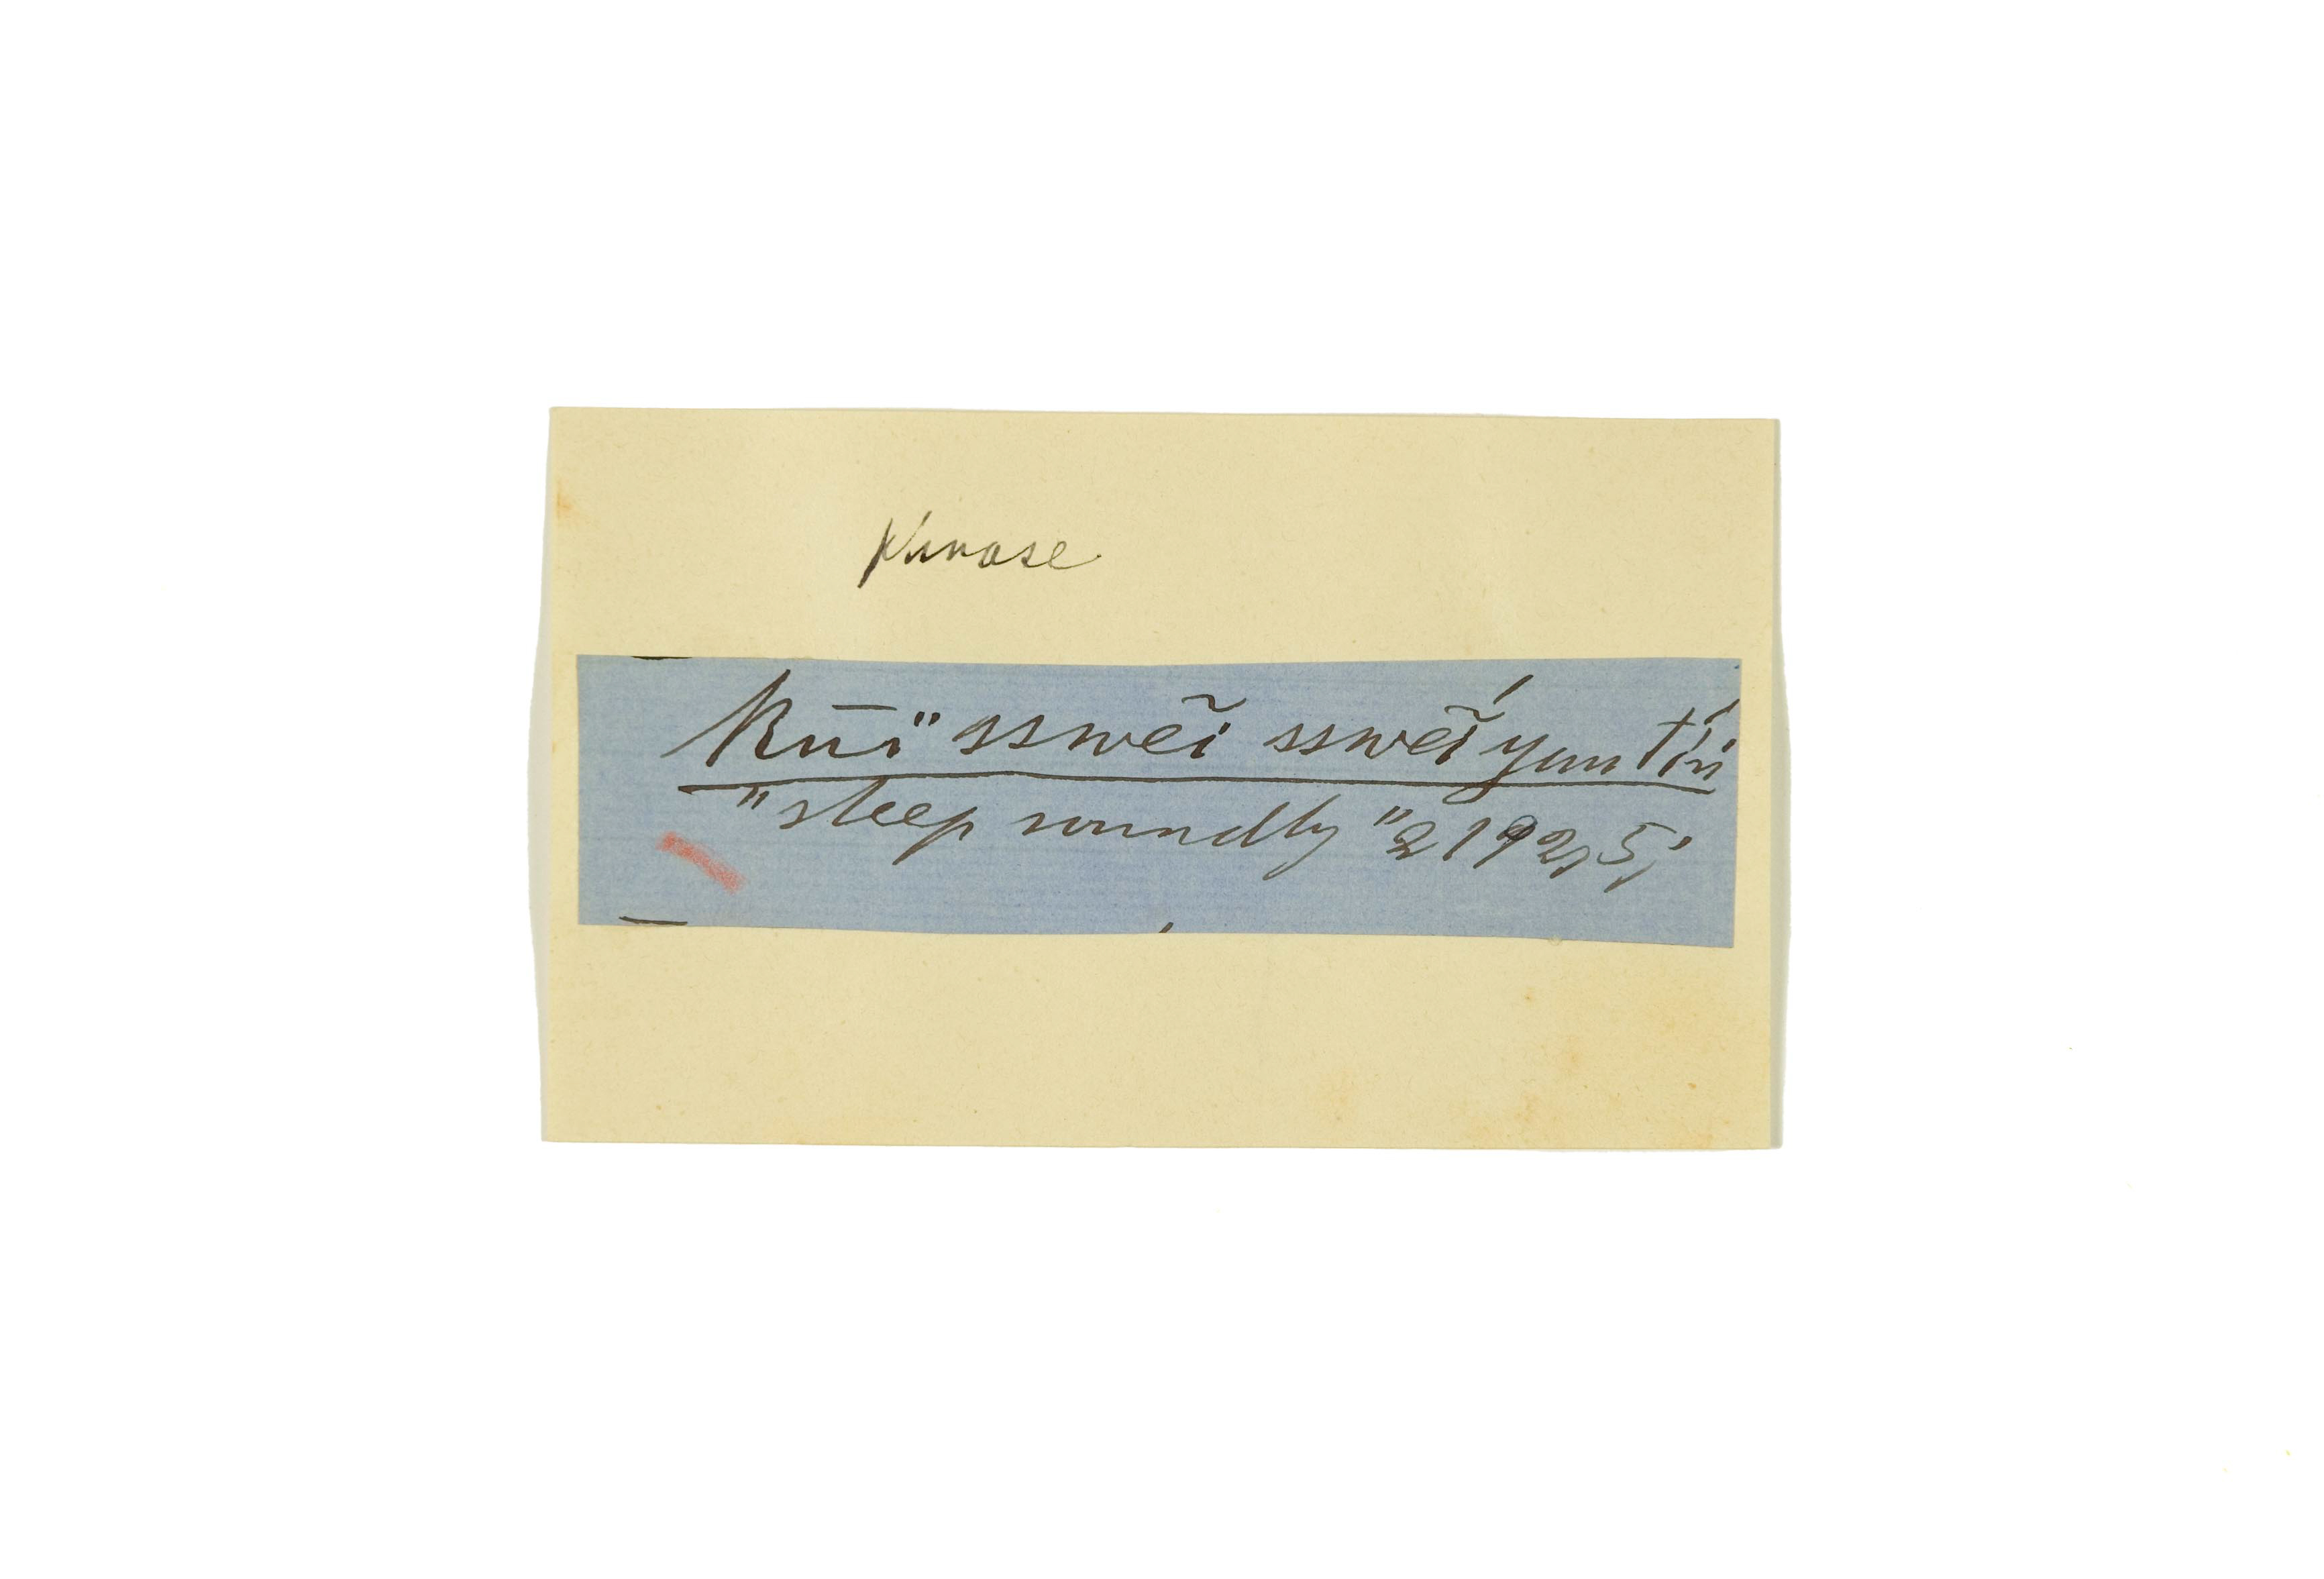 Phrase
Kūï" sswẽi sswẽí yau tíṅ
"sleep soundly" 2192,5,